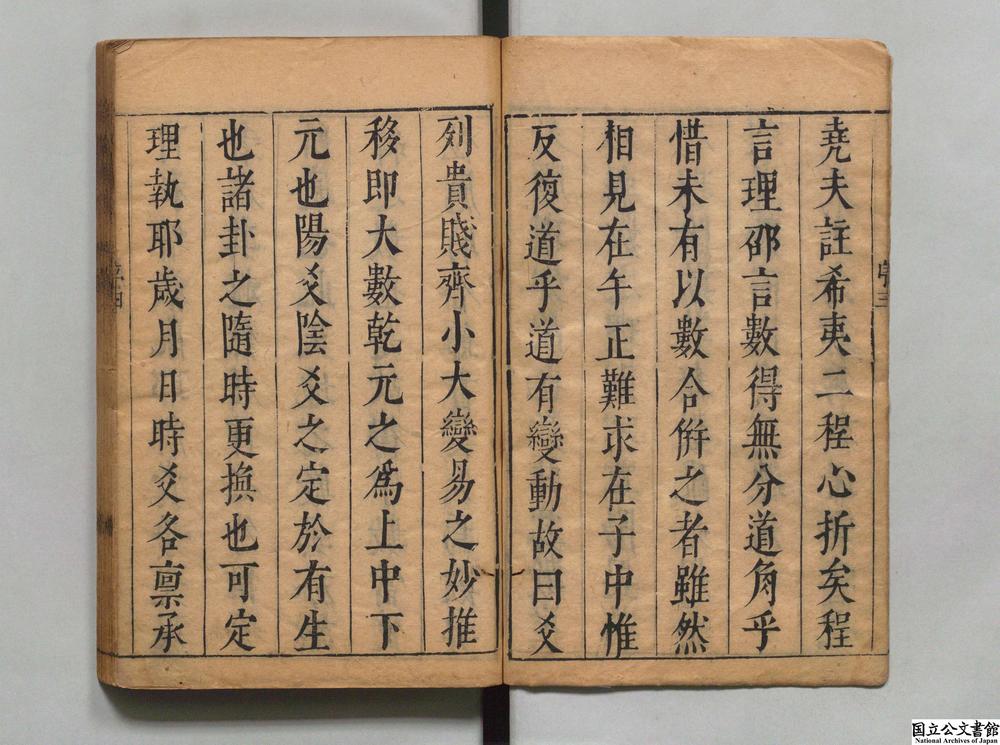 堯夫註希夷二程心折矣程
言理邵言數得無分道角乎
惜未有以數合倂之者雖然
相見在午正難求在子中惟
反復道乎道有變動故曰爻
列貴賤齊小大變易之妙推
移即大數乾元之爲上中下
元也陽爻陰爻之定於有生
也諸卦之隨時更換也可定
理執耶歲月日時爻各禀承
国立公文書館
National Archives of Japan